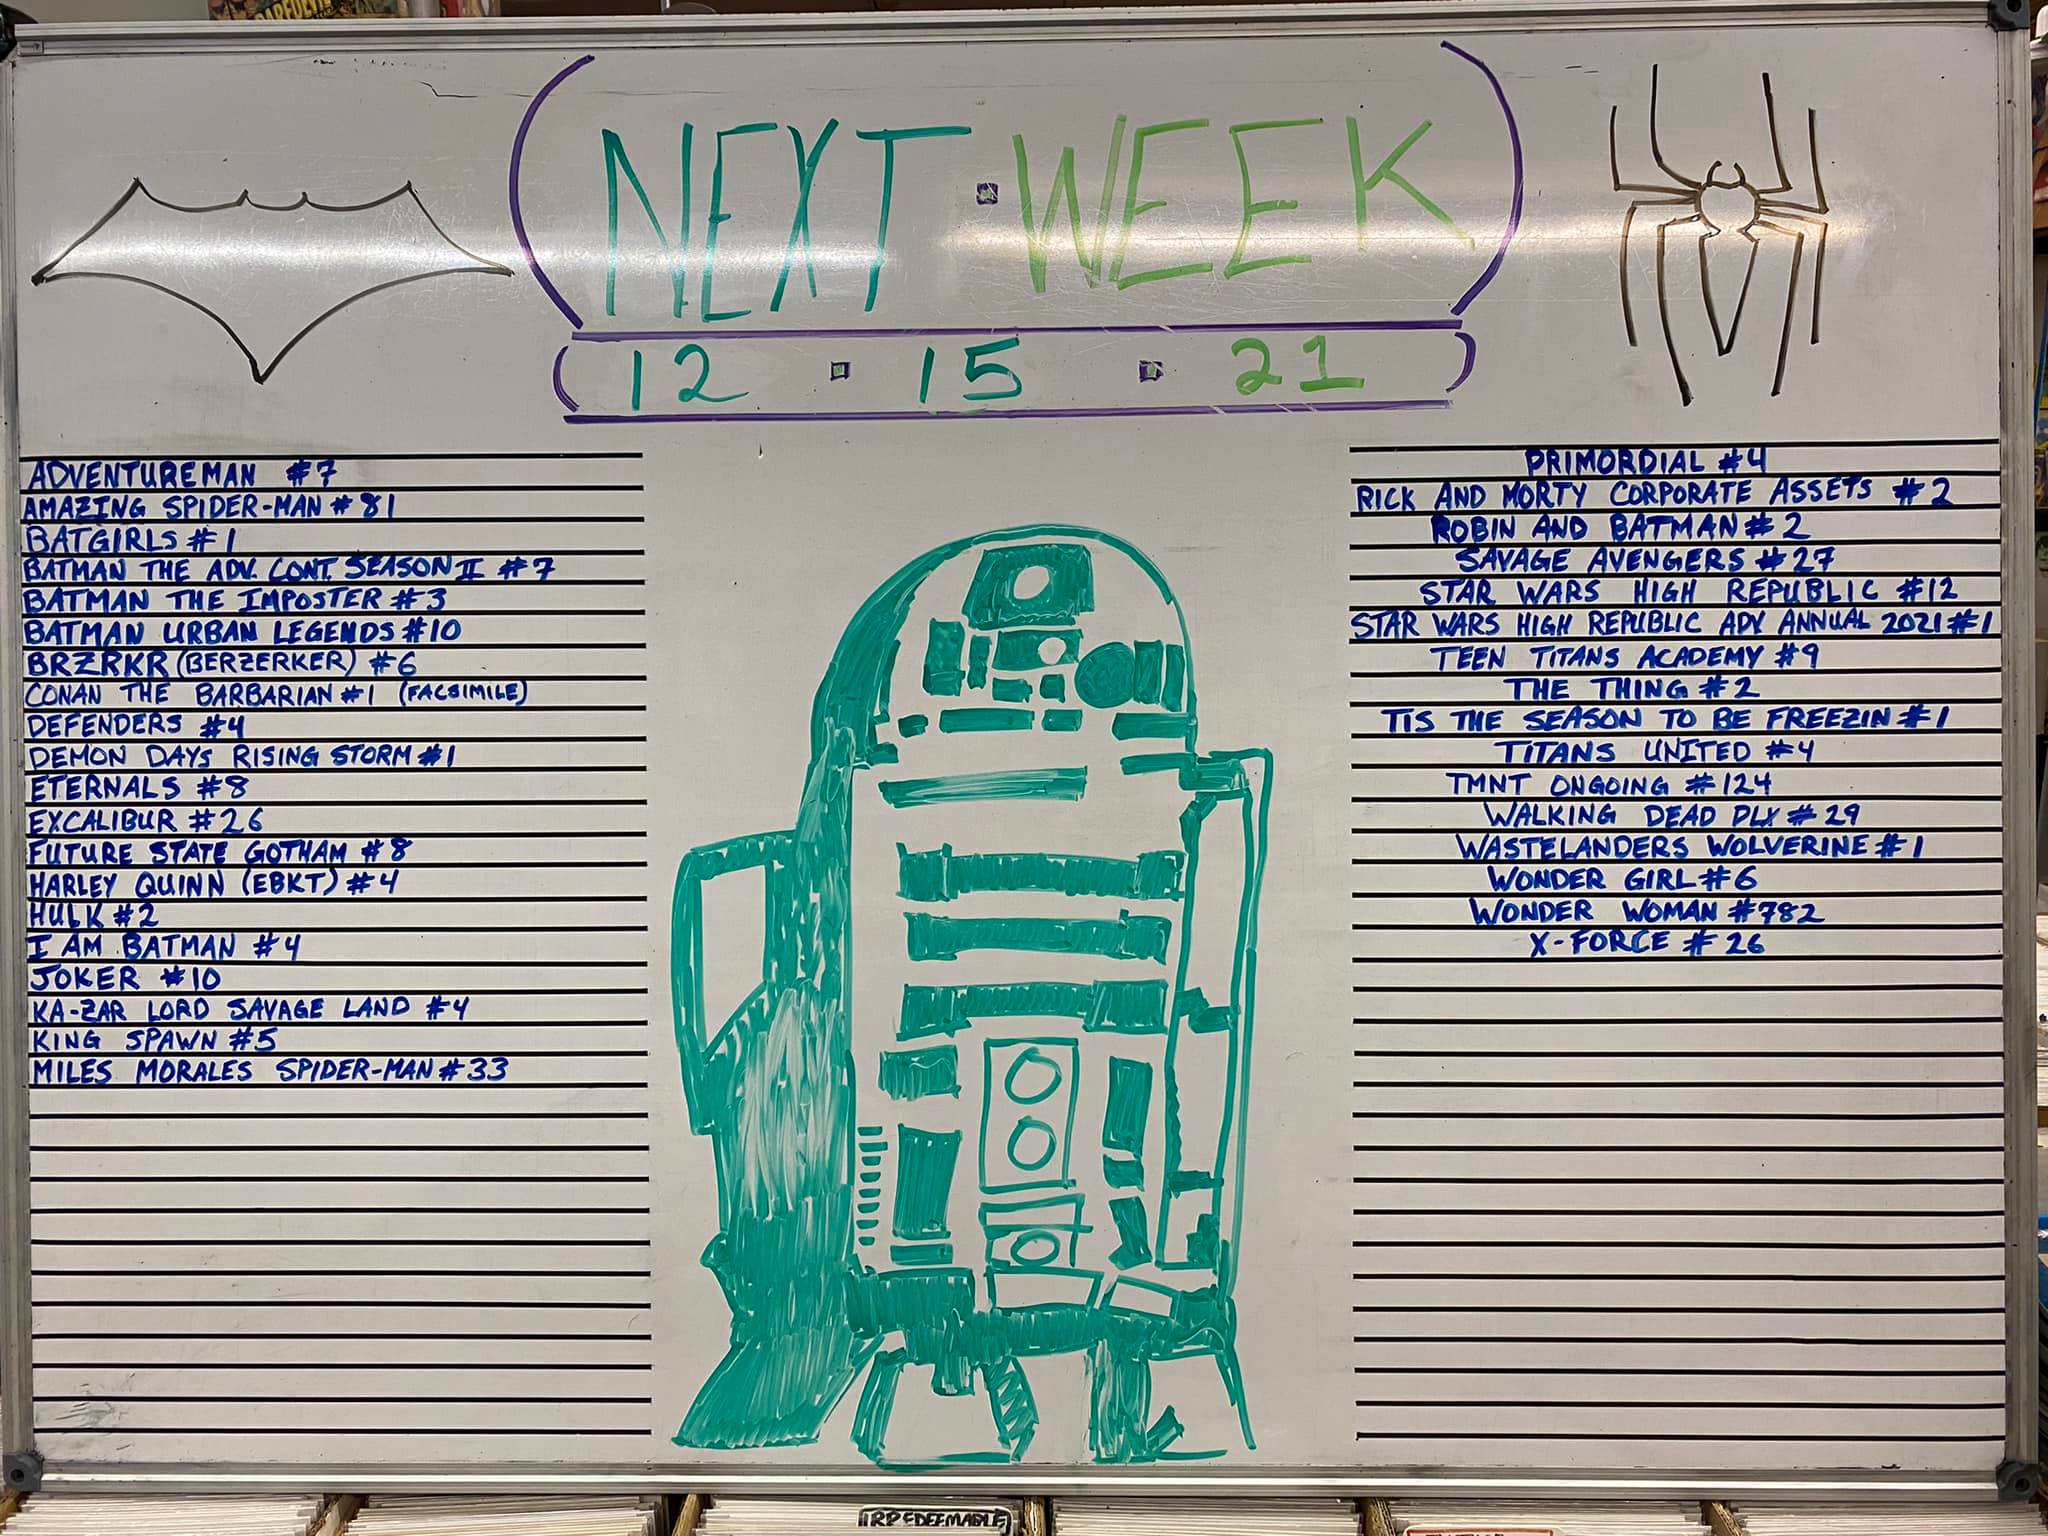 DAREDEVIL
NEXT · WEEK
12 · 15 · 21
ADVENTUREMAN #7
AMAZING SPIDER-MAN #81
BATGIRLS #1
BATMAN THE ADV. CONT. SEASON II #7
BATMAN THE IMPOSTER #3
BATMAN URBAN LEGENDS #10
BRZRKR (BERZERKER) #6
CONAN THE BARBARIAN #1 (FACSIMILE)
DEFENDERS #4
DEMON DAYS RISING STORM #1
ETERNALS #8
EXCALIBUR #26
FUTURE STATE GOTHAM #8
HARLEY QUINN (EBKT) #4
HULK #2
I AM BATMAN #4
JOKER #10
KA-ZAR LORD SAVAGE LAND #4
KING SPAWN #5
MILES MORALES SPIDER-MAN #33
PRIMORDIAL #4
RICK AND MORTY CORPORATE ASSETS #2
ROBIN AND BATMAN #2
SAVAGE AVENGERS #27
STAR WARS HIGH REPUBLIC #12
STAR WARS HIGH REPUBLIC ADV ANNUAL 2021 #1
TEEN TITANS ACADEMY #9
THE THING #2
TIS THE SEASON TO BE FREEZIN #1
TITANS UNITED #4
TMNT ONGOING #124
WALKING DEAD DLX #29
WASTELANDERS WOLVERINE #1
WONDER GIRL #6
WONDER WOMAN #782
X-FORCE #26
IRREDEEMABLE